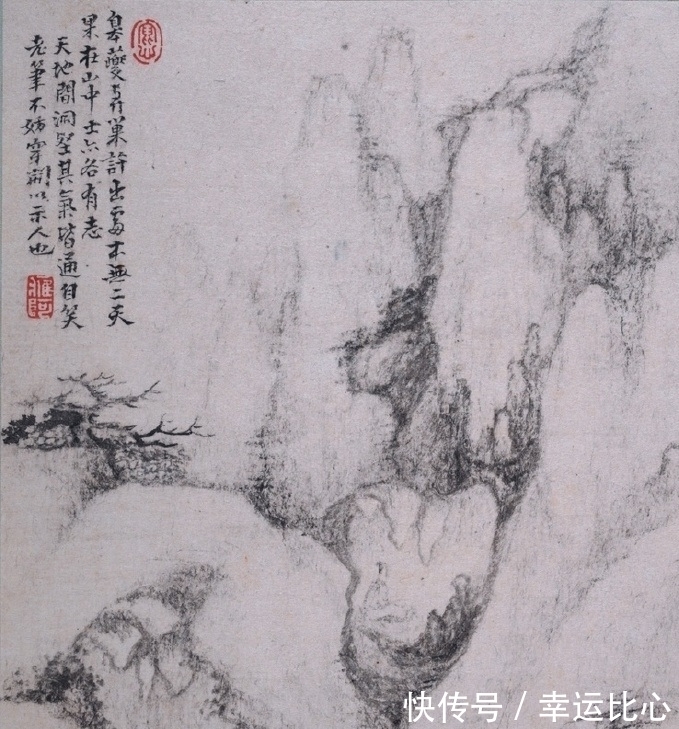 皋夔与巢許出處本無二
果在山中士六各有志
天地間洞壑其氣皆通自笑
老筆不妨穿以示人也
快传号 / 幸运比心